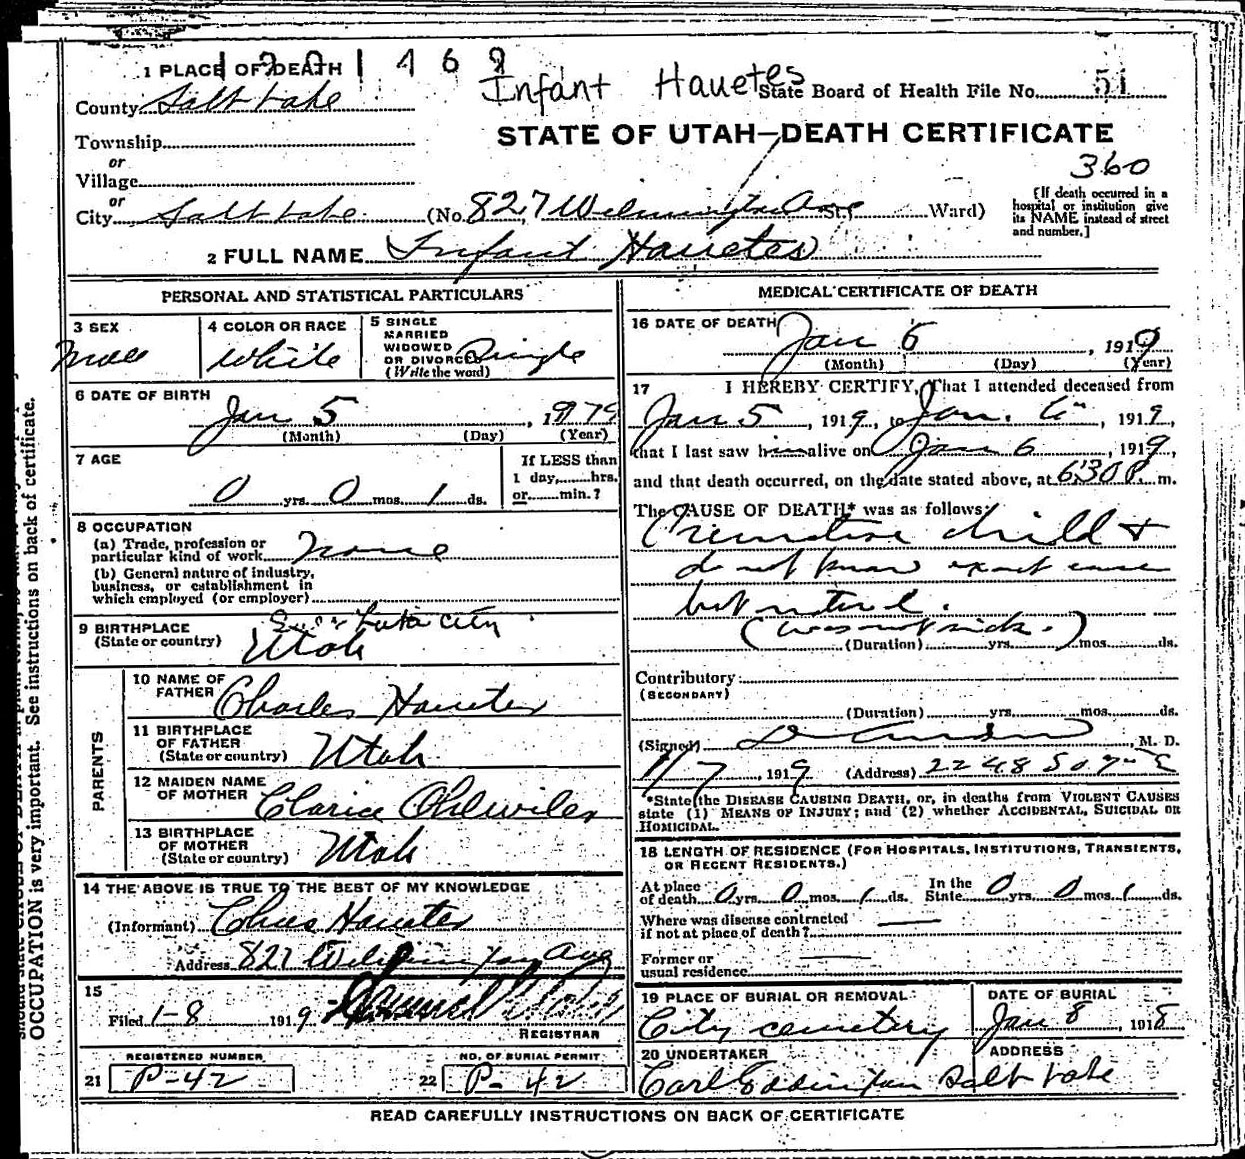 1 PLACE OF DEATH
Infant Hauetes
State Board of Health File No. 51
County Salt Lake
STATE OF UTAH—DEATH CERTIFICATE
Township
or
Village
or
360
[If death occurred in a hospital or institution give its NAME instead of street and number.]
City Salt Lake (No. 827 Wilmington Ave St. Ward)
2 FULL NAME Infant Hauetes
PERSONAL AND STATISTICAL PARTICULARS
3 SEX Male
4 COLOR OR RACE White
5 SINGLE MARRIED WIDOWED OR DIVORCED (Write the word) Single
6 DATE OF BIRTH
Jan 5, 1919
(Month) (Day) (Year)
7 AGE
0 yrs. 0 mos. 1 ds.
If LESS than 1 day, hrs. or min.?
8 OCCUPATION
(a) Trade, profession or particular kind of work None
(b) General nature of industry, business, or establishment in which employed (or employer)
9 BIRTHPLACE (State or country) Utah
PARENTS
10 NAME OF FATHER Charles Haueter
11 BIRTHPLACE OF FATHER (State or country) Utah
12 MAIDEN NAME OF MOTHER Clarice Ohlwiler
13 BIRTHPLACE OF MOTHER (State or country) Utah
14 THE ABOVE IS TRUE TO THE BEST OF MY KNOWLEDGE
(Informant) Chas Haueter
Address 827 Wilmington Ave
15
Filed 1-8 1919
REGISTRAR
REGISTERED NUMBER
21 P-42
NO. OF BURIAL PERMIT
22 P-42
MEDICAL CERTIFICATE OF DEATH
16 DATE OF DEATH
Jan 6, 1919
(Month) (Day) (Year)
17 I HEREBY CERTIFY, That I attended deceased from
Jan 5, 1919, to Jan. 6", 1919,
that I last saw him alive on Jan 6, 1919,
and that death occurred, on the date stated above, at 6:30 P. m.
The CAUSE OF DEATH* was as follows:
Premature child +
do not know exact cause
but natural.
(was not sick.)
(Duration) yrs. mos. ds.
Contributory
(SECONDARY)
(Duration) yrs. mos. ds.
(Signed), M. D.
1/7, 1919 (Address) 2248 So 7th E
*State the DISEASE CAUSING DEATH, or, in deaths from VIOLENT CAUSES state (1) MEANS OF INJURY; and (2) whether ACCIDENTAL, SUICIDAL OR HOMICIDAL.
18 LENGTH OF RESIDENCE (FOR HOSPITALS, INSTITUTIONS, TRANSIENTS, OR RECENT RESIDENTS.)
At place of death 0 yrs. 0 mos. 1 ds. In the State 0 yrs. 0 mos. 1 ds.
Where was disease contracted if not at place of death?
Former or usual residence
19 PLACE OF BURIAL OR REMOVAL
City cemetery
DATE OF BURIAL
Jan 8, 1918
20 UNDERTAKER
ADDRESS
Salt Lake
READ CAREFULLY INSTRUCTIONS ON BACK OF CERTIFICATE
OCCUPATION is very important. See instructions on back of certificate.